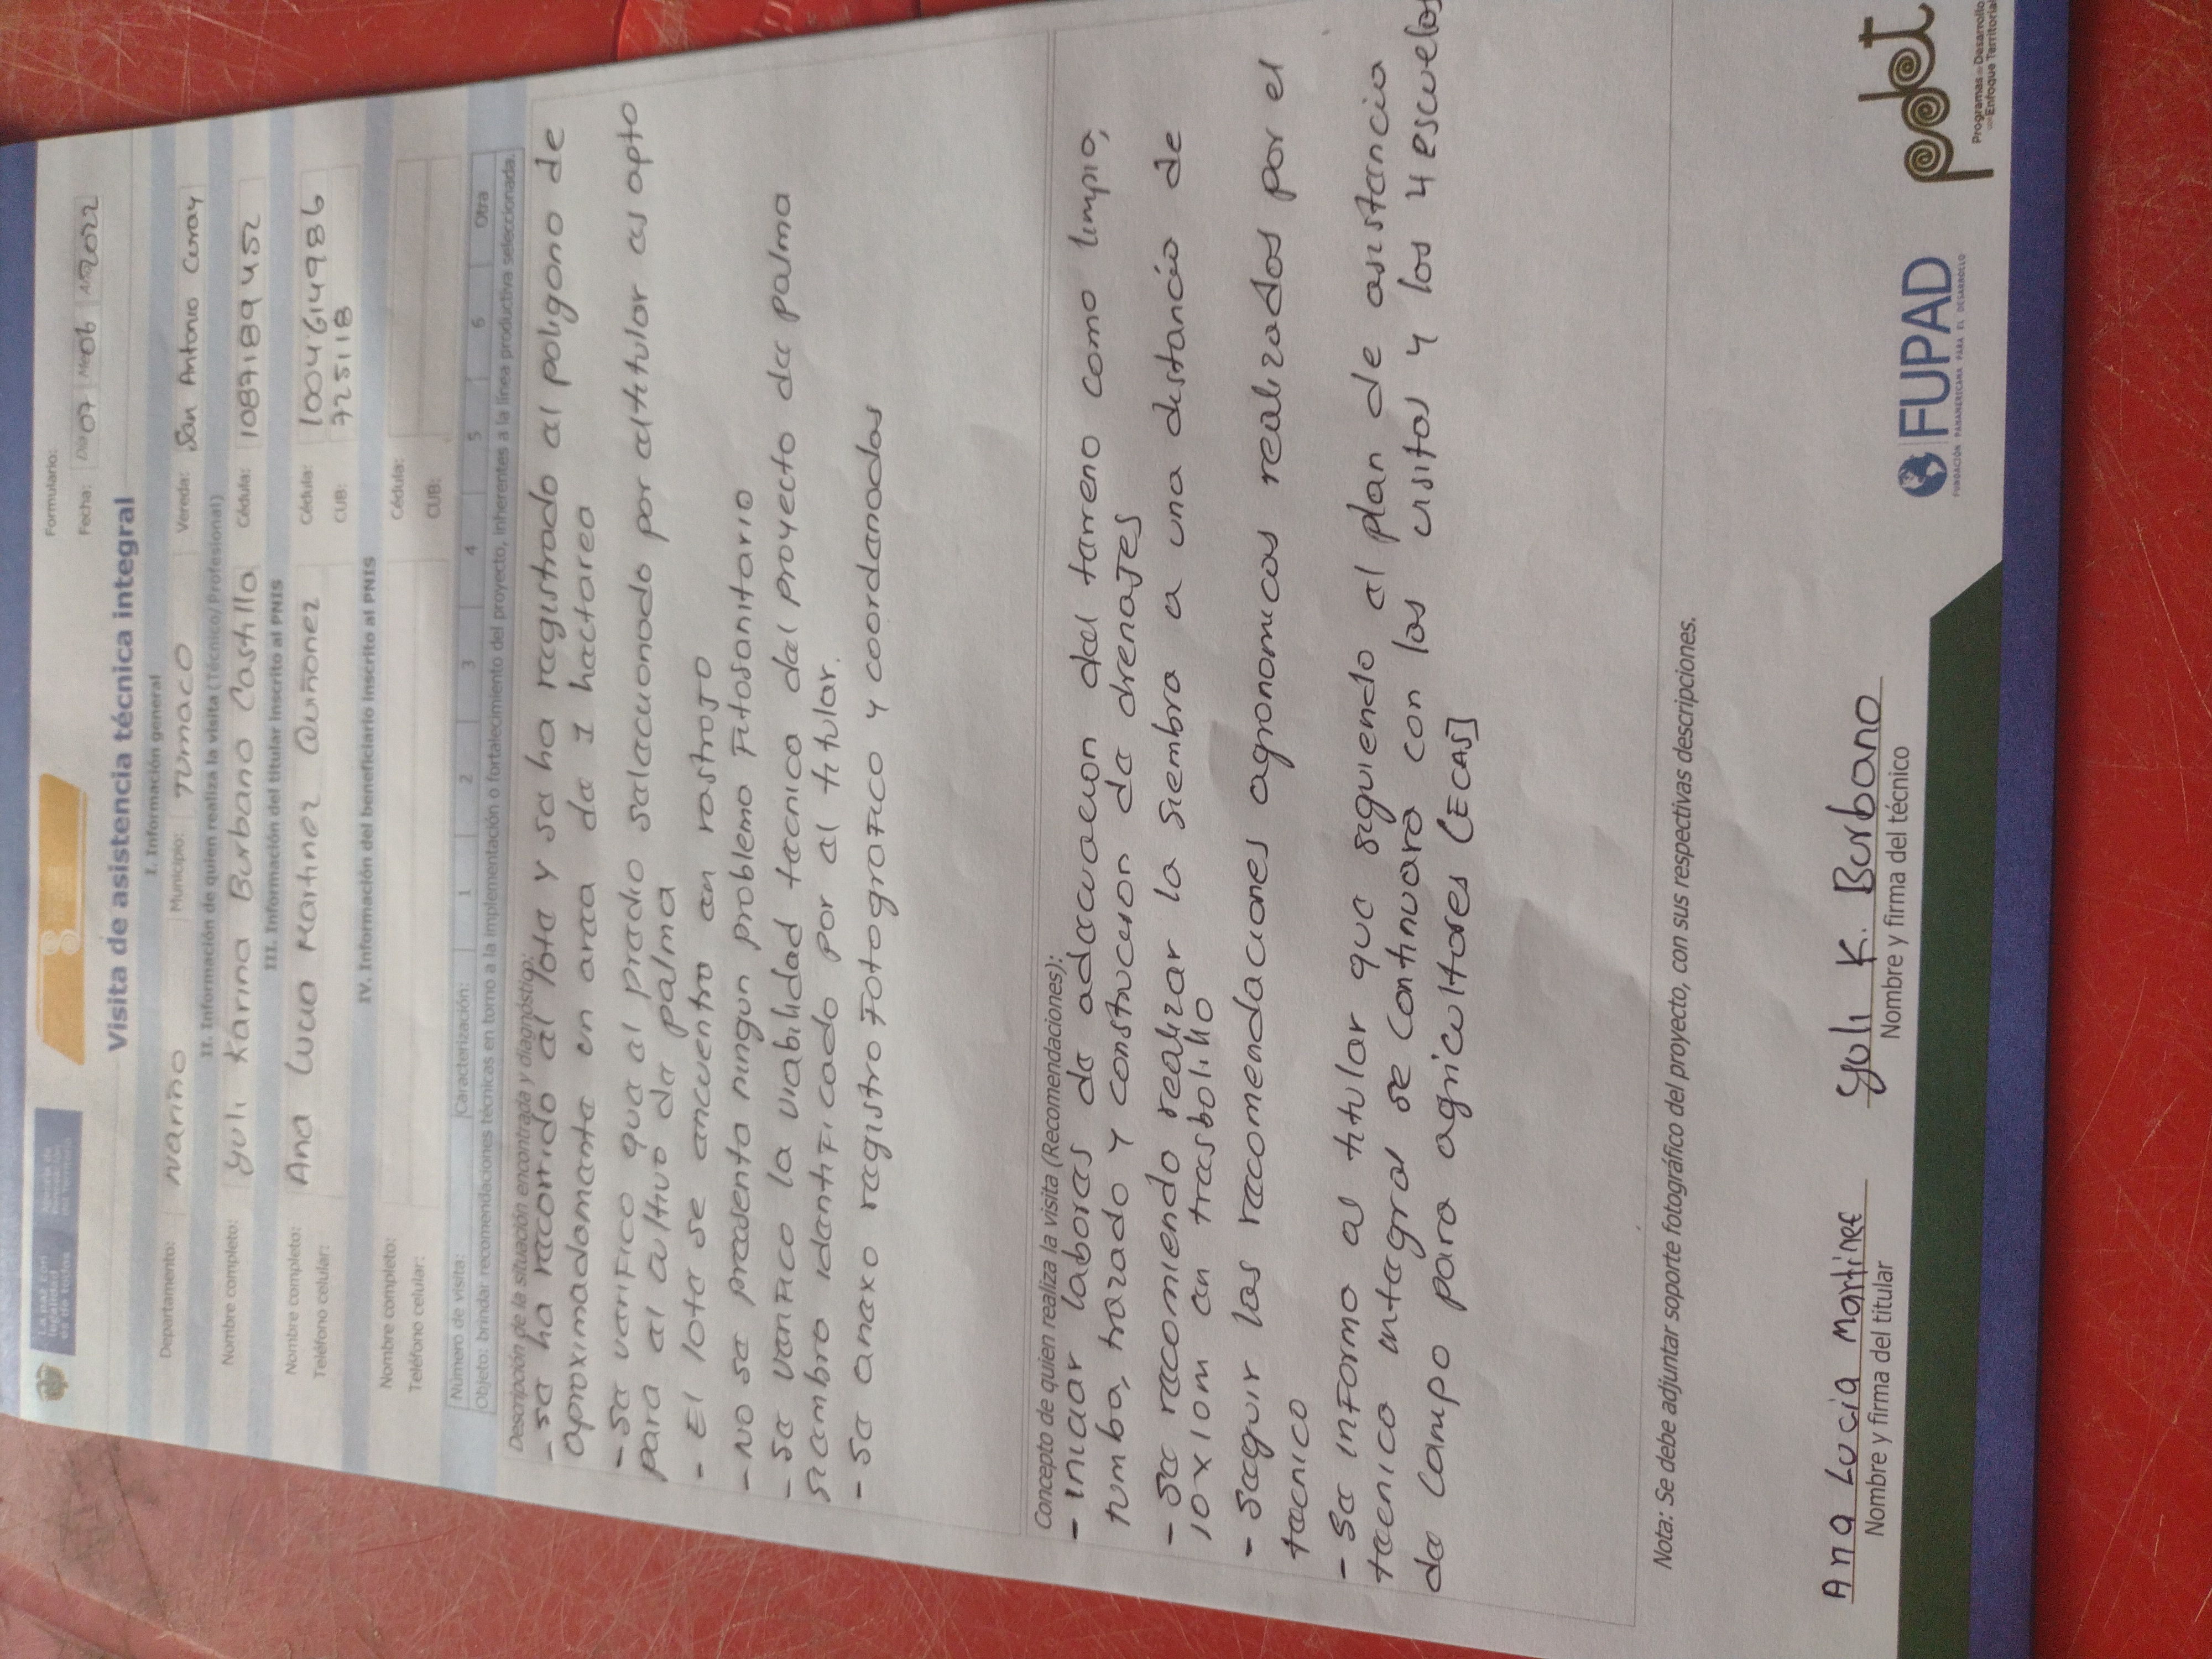 La paz con
legalidad
es de todos
Formulario:
Fecha: Día 07 Mes 06 Año 2022
Visita de asistencia técnica integral
I. Información general
Departamento: Nariño Municipio: Tumaco Vereda: San Antonio Curay
II. Información de quien realiza la visita (Técnico/Profesional)
Nombre completo: Yuli Karina Burbano Castillo Cédula: 1087189452
III. Información del titular inscrito al PNIS
Nombre completo: Ana Lucia Martinez Quiñonez Cédula: 1004614986
Teléfono celular: CUB: 725118
IV. Información del beneficiario inscrito al PNIS
Nombre completo: Cédula:
Teléfono celular: CUB:
Número de visita: Caracterización: 1 2 3 4 5 6 Otra
Objeto: brindar recomendaciones técnicas en torno a la implementación o fortalecimiento del proyecto, inherentes a la línea productiva seleccionada.
Descripción de la situación encontrada y diagnóstico:
- se ha recorrido el lote y se ha registrado el poligono de
aproximadamente un area de 1 hectarea
- Se verifico que el predio selecuonado por el titular es apto
para el cultivo de palma
- El lote se encuentra en rastrojo
- No se presenta ningun problema Fitosanitario
- Se verifico la viabilidad tecnica del proyecto de palma
siembra identificado por el titular.
- Se anexo registro Fotografico y coordenadas
Concepto de quien realiza la visita (Recomendaciones):
- iniciar labores de adecuacion del terreno como limpia,
tumba, trazado y construccion de drenajes
- Se recomienda realizar la siembra a una distancia de
10 x 10m en tresbolillo
- Seguir las recomendaciones agronomicas realizadas por el
tecnico
- Se informo al titular que siguiendo el plan de asistencia
tecnica integral se continuara con las visitas y las 4 escuelas
de campo para agricultores (ECAS]
Nota: Se debe adjuntar soporte fotográfico del proyecto, con sus respectivas descripciones.
Ana Lucia Martinez Yuli K. Burbano
Nombre y firma del titular Nombre y firma del técnico
FUPAD
FUNDACIÓN PANAMERICANA PARA EL DESARROLLO
pdet
Programas de Desarrollo
con Enfoque Territorial